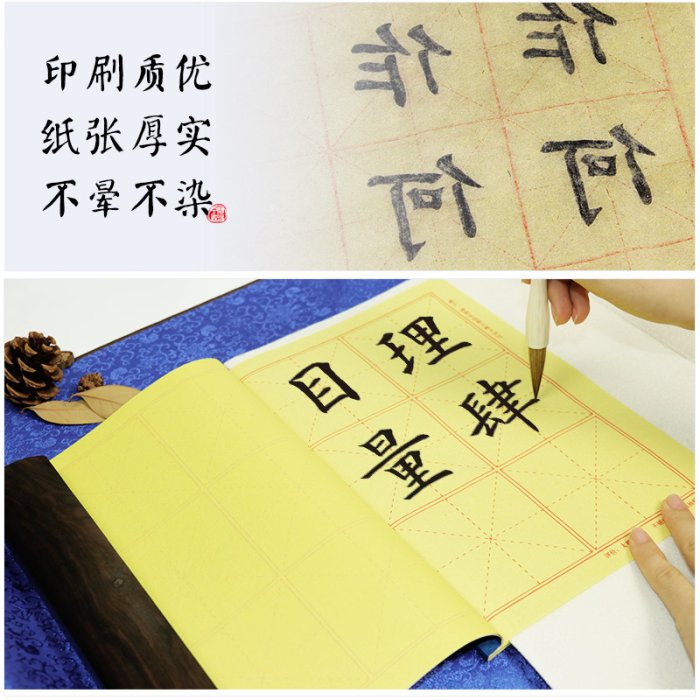 印刷质优
纸张厚实
不晕不染
作 作
何 何
目 理
量 肆